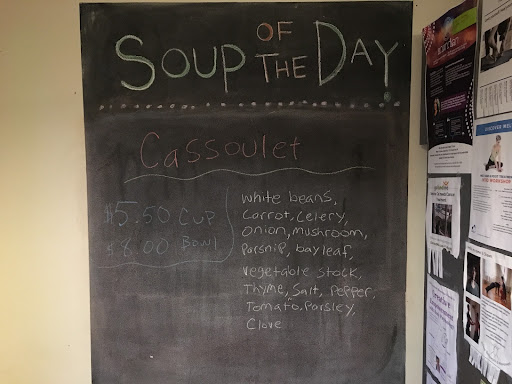 SOUP OF THE DAY
Cassoulet
$5.50 CUP
$8.00 BOWL
white beans,
Carrot, Celery,
Onion, mushroom,
Parsnip, bay leaf,
vegetable stock,
Thyme, Salt, Pepper,
Tomato, Parsley,
Clove
DISCOVER WEL